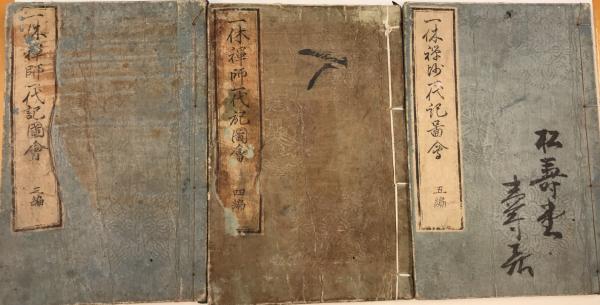 一休禪師一代記圖會
三編
一休禪師一代記圖會
四編
一休禪師一代記圖會
五編
松壽堂